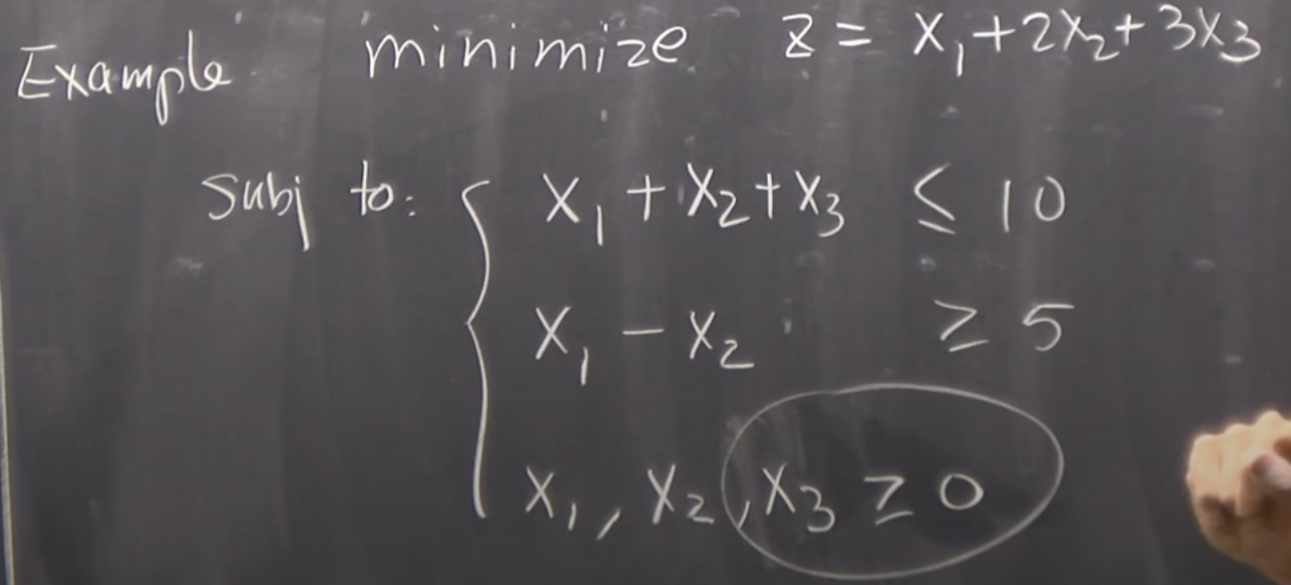 Example minimize z = x₁+2x₂+3x₃
Subj to: { x₁ + x₂+x₃ ≤ 10
x₁ − x₂ ≥ 5
x₁, x₂, x₃ ≥ 0